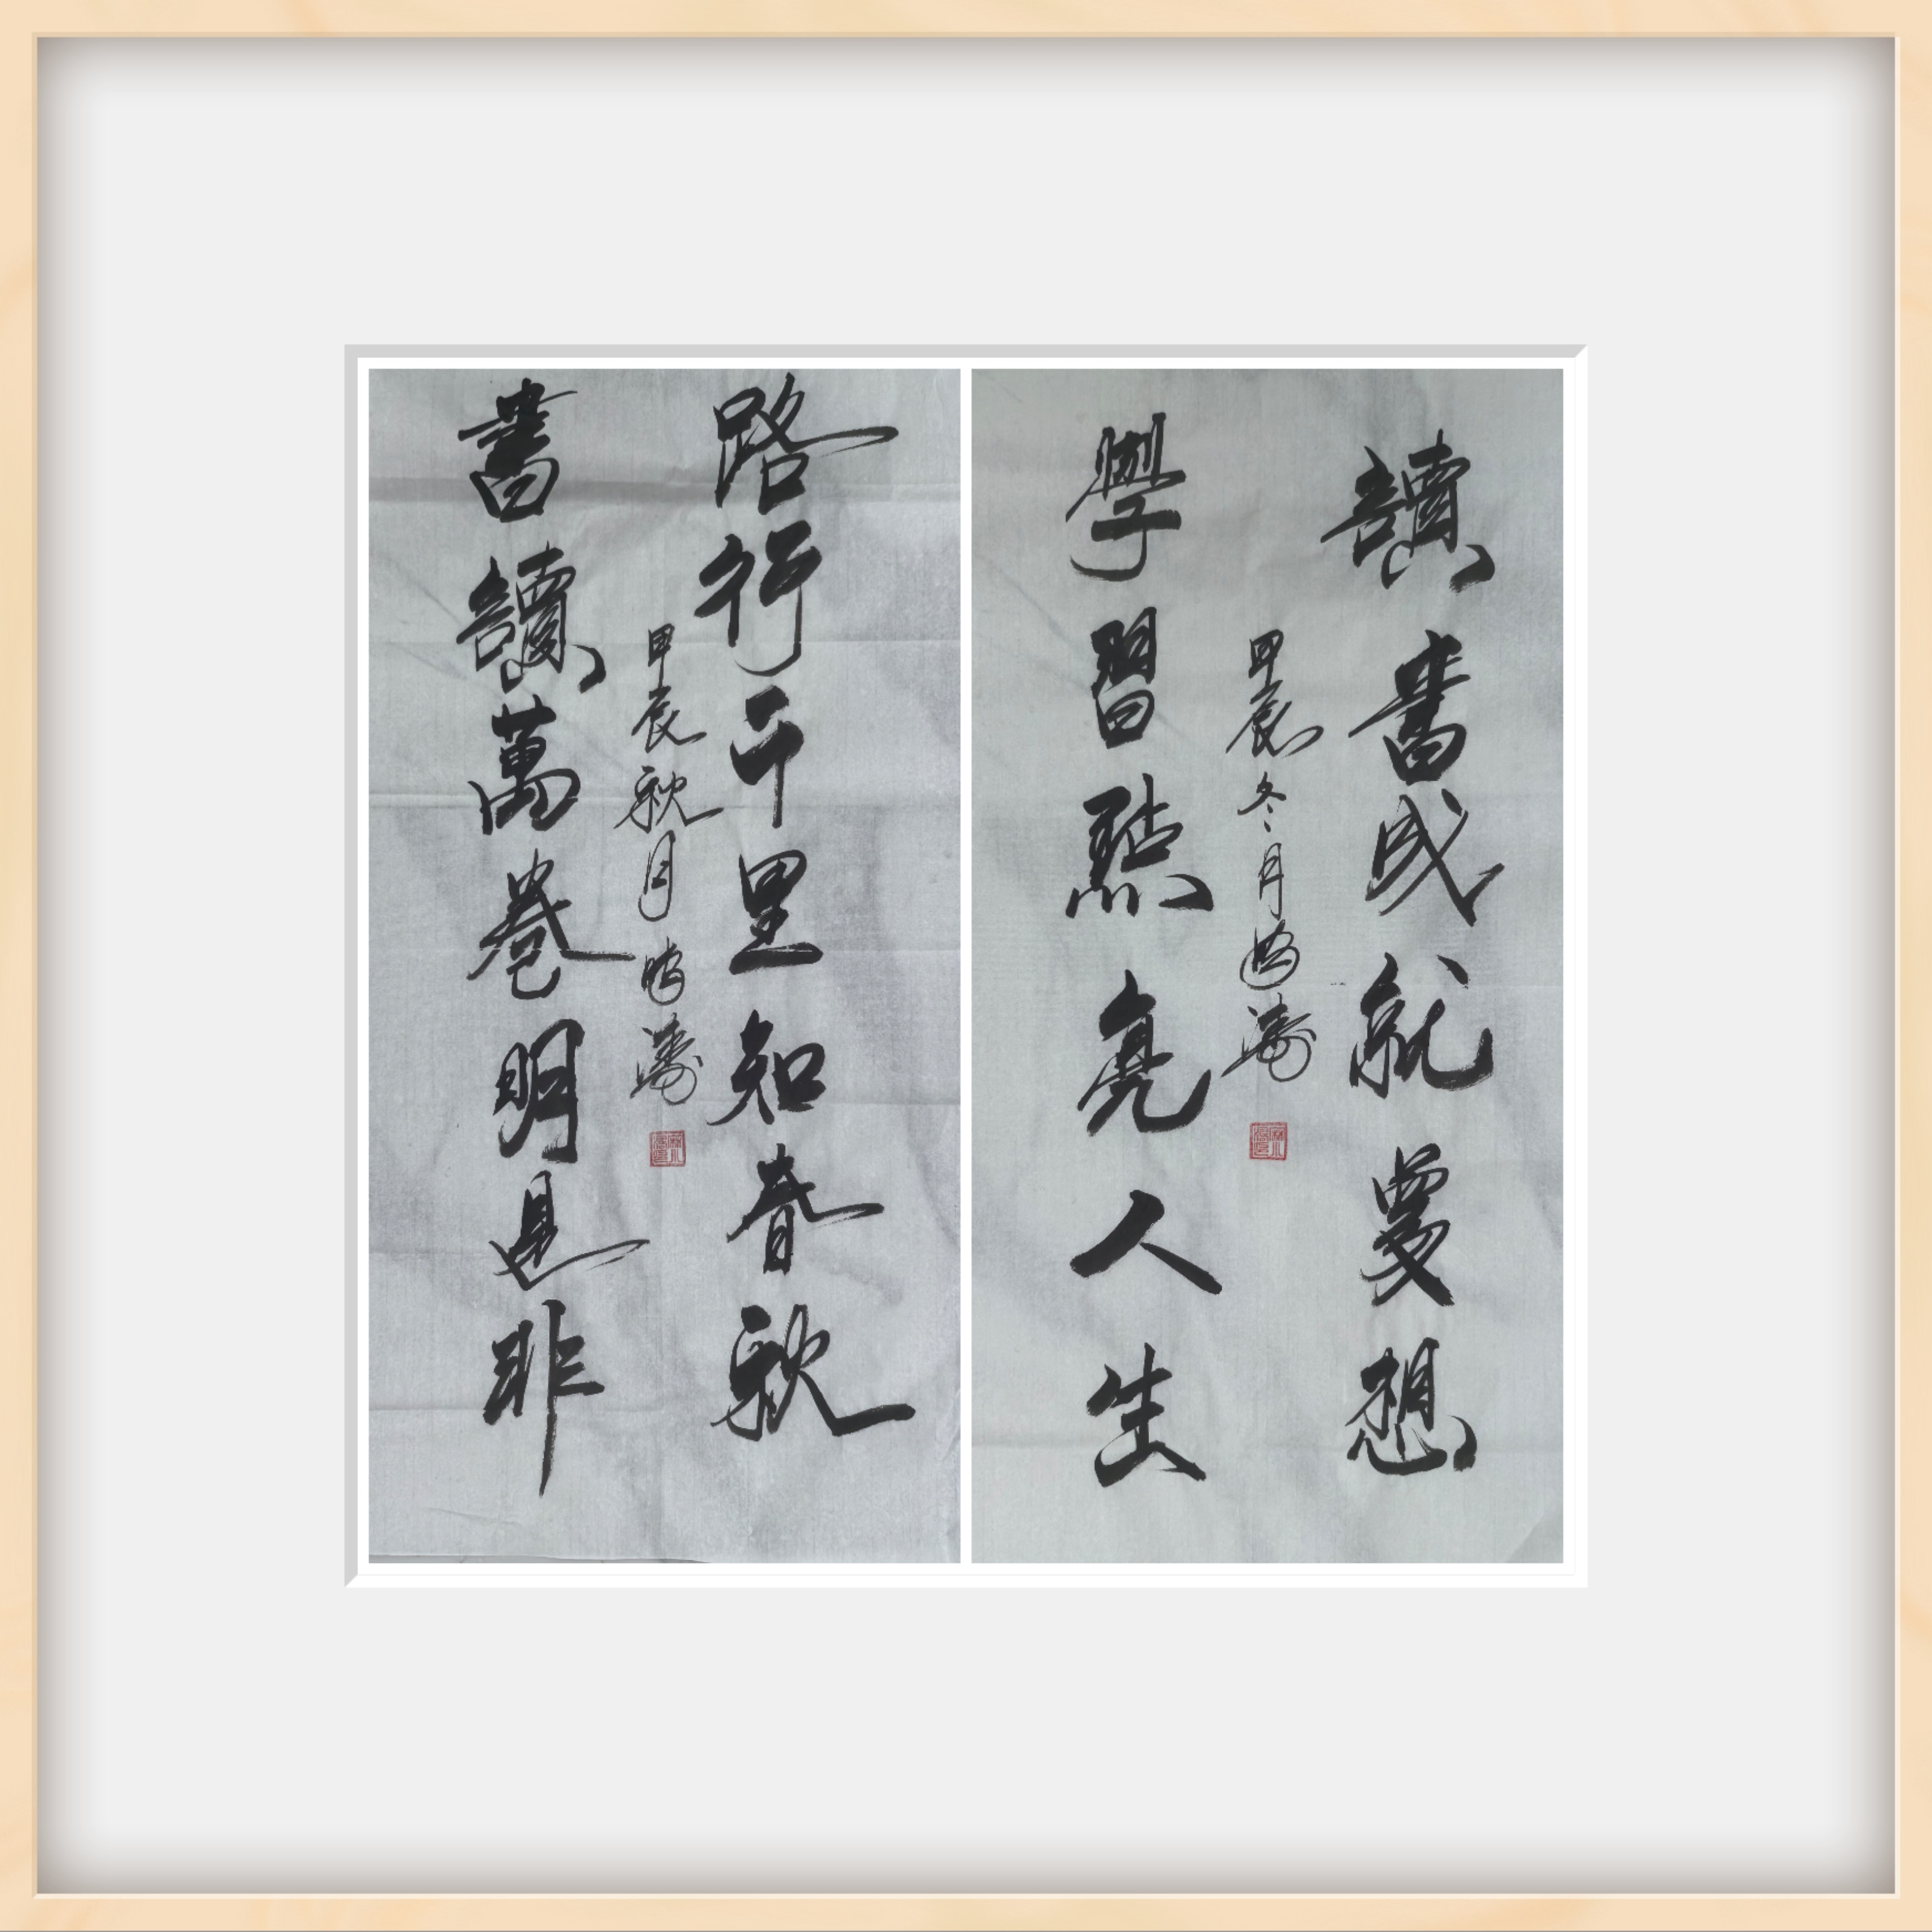 讀書成就夢想
學習點亮人生
甲辰冬月濤
路行千里知春秋
書讀萬卷明是非
甲辰秋月濤